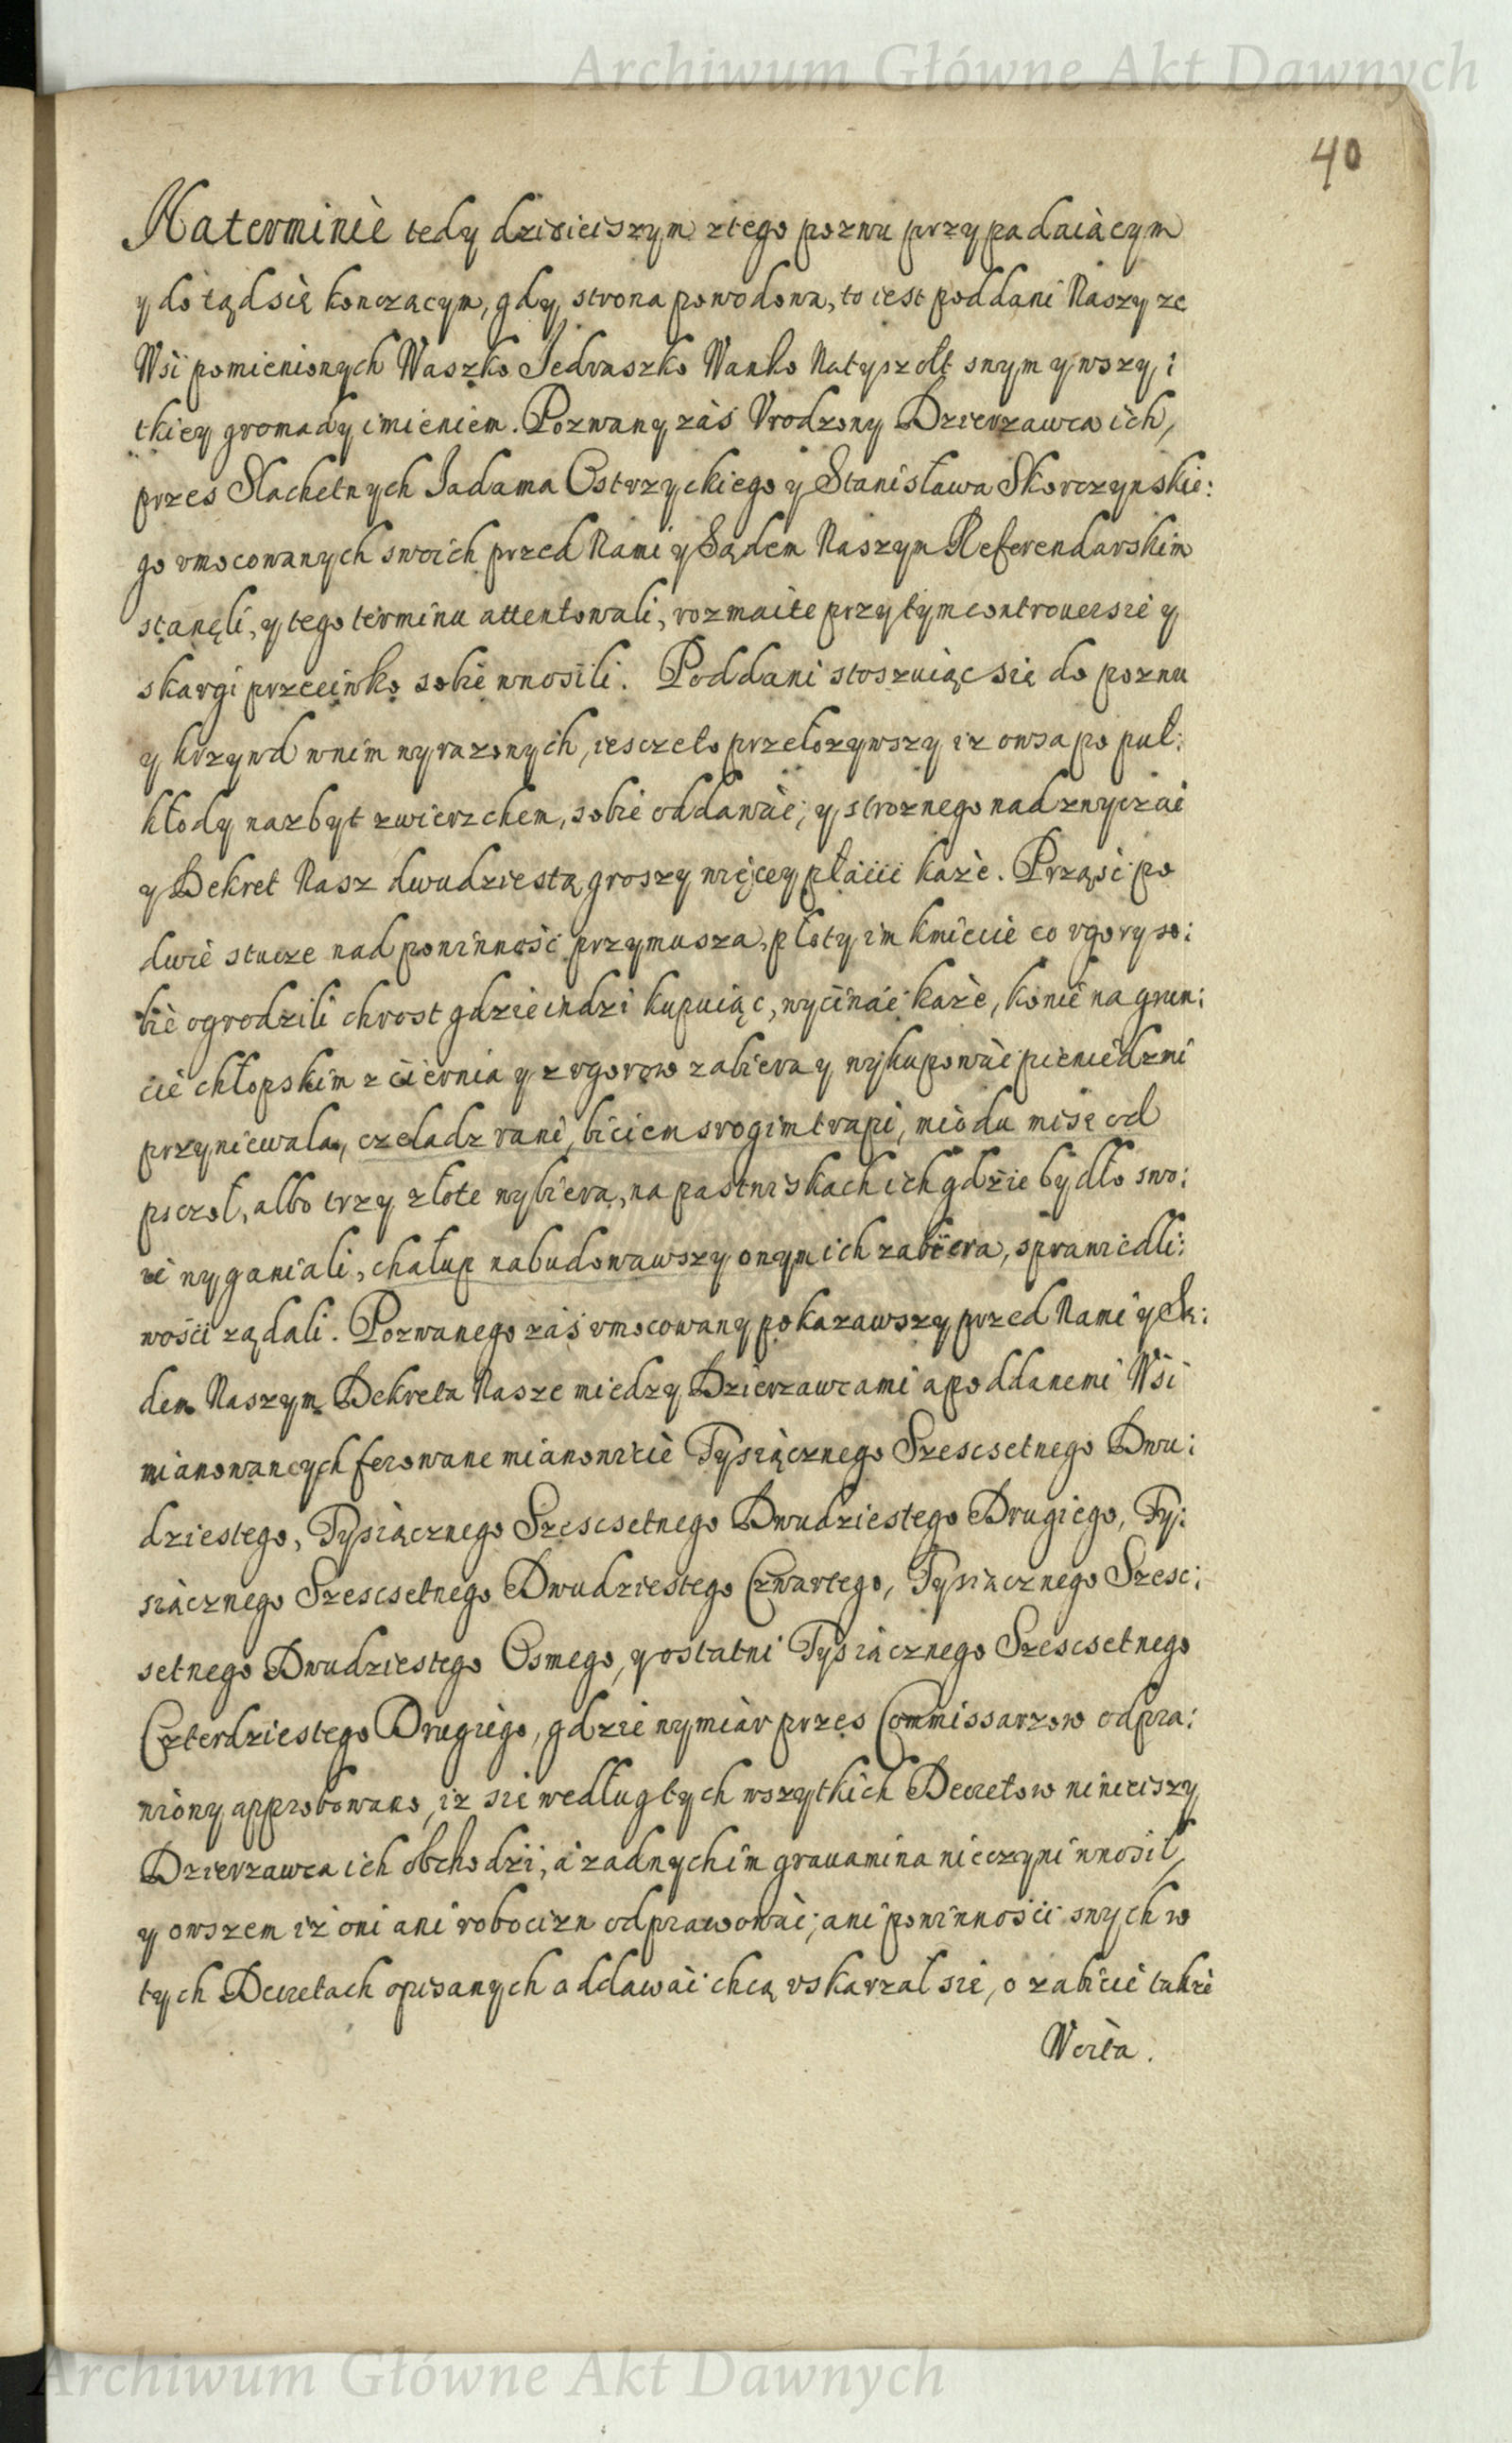 Archiwum Główne Akt Dawnych
40
Na terminie tedy dzisieiszym z tego pozwu przypadaiącym
y do tąd się konczącym, gdy strona powodowa, to iest poddani Naszy ze
Wsi pomienionych Waszko Jedraszko Wanko Natysz olt swym y wszy:
tkiey gromady imieniem. Pozwany zaś Vrodzony Dzierzawca ich,
przes Slachetnych Jadama Ostrzyckiego y Stanisława Skorczynskie:
go vmocowanych swoich przed Nami y Sądem Naszym Referendarskim
stanęli, y tego terminu attentowali, rozmaite przy tym controuersie y
skargi przeciwko sobie wnosili. Poddani stosuiąc się do pozwu
y krzywd w nim wyrazonych, iescze to przełozywszy iz owsa po puł:
kłody nazbyt z wierzchem, sobie oddawać, y stroznego nad zwyczai
y Dekret Nasz dwudziestą groszy więcey płacić każe. Prząść po
dwie stucze nad powinność przymusza, płoty im kmiecie co vgory so:
bie ogrodzili chrost gdzie indzi kupuiąc, wycinać każe, konie na grun:
cie chłopskim z ciernia y z vgorow zabiera y wykupować pieniedzmi
przyniewala, czeladz rani, biciem srogim trapi, miodu misę od
psczoł, albo trzy złote wybiera, na pastwiskach ich gdzie bydło swo:
ie wyganiali, chałup nabudowawszy onym ich zabiera, sprawiedli:
wości ządali. Pozwanego zaś vmocowany pokazawszy przed Nami y Są:
dem Naszym Dekreta Nasze miedzy Dzierzawcami a poddanemi Wsi
mianowanych ferowane mianowicie Tysiącznego Szescsetnego Dwu:
dziestego, Tysiącznego Szescsetnego Dwudziestego Drugiego, Ty:
siącznego Szescsetnego Dwudziestego Czwartego, Tysiącznego Szesc:
setnego Dwudziestego Osmego, y ostatni Tysiącznego Szescsetnego
Czterdziestego Drugiego, gdzie wymiar przes Commissarzow odpra:
wiony approbowano, iz sie według tych wszytkich Decretow ninieiszy
Dzierzawca ich obchodzi, a zadnych im grauamina nieczyni wnosił,
y owszem iż oni ani robocizn odprawować, ani powinności swych w
tych Decretach opisanych oddawać chcą vskarzał sie, o zabicie takze
Woita.
Archiwum Główne Akt Dawnych